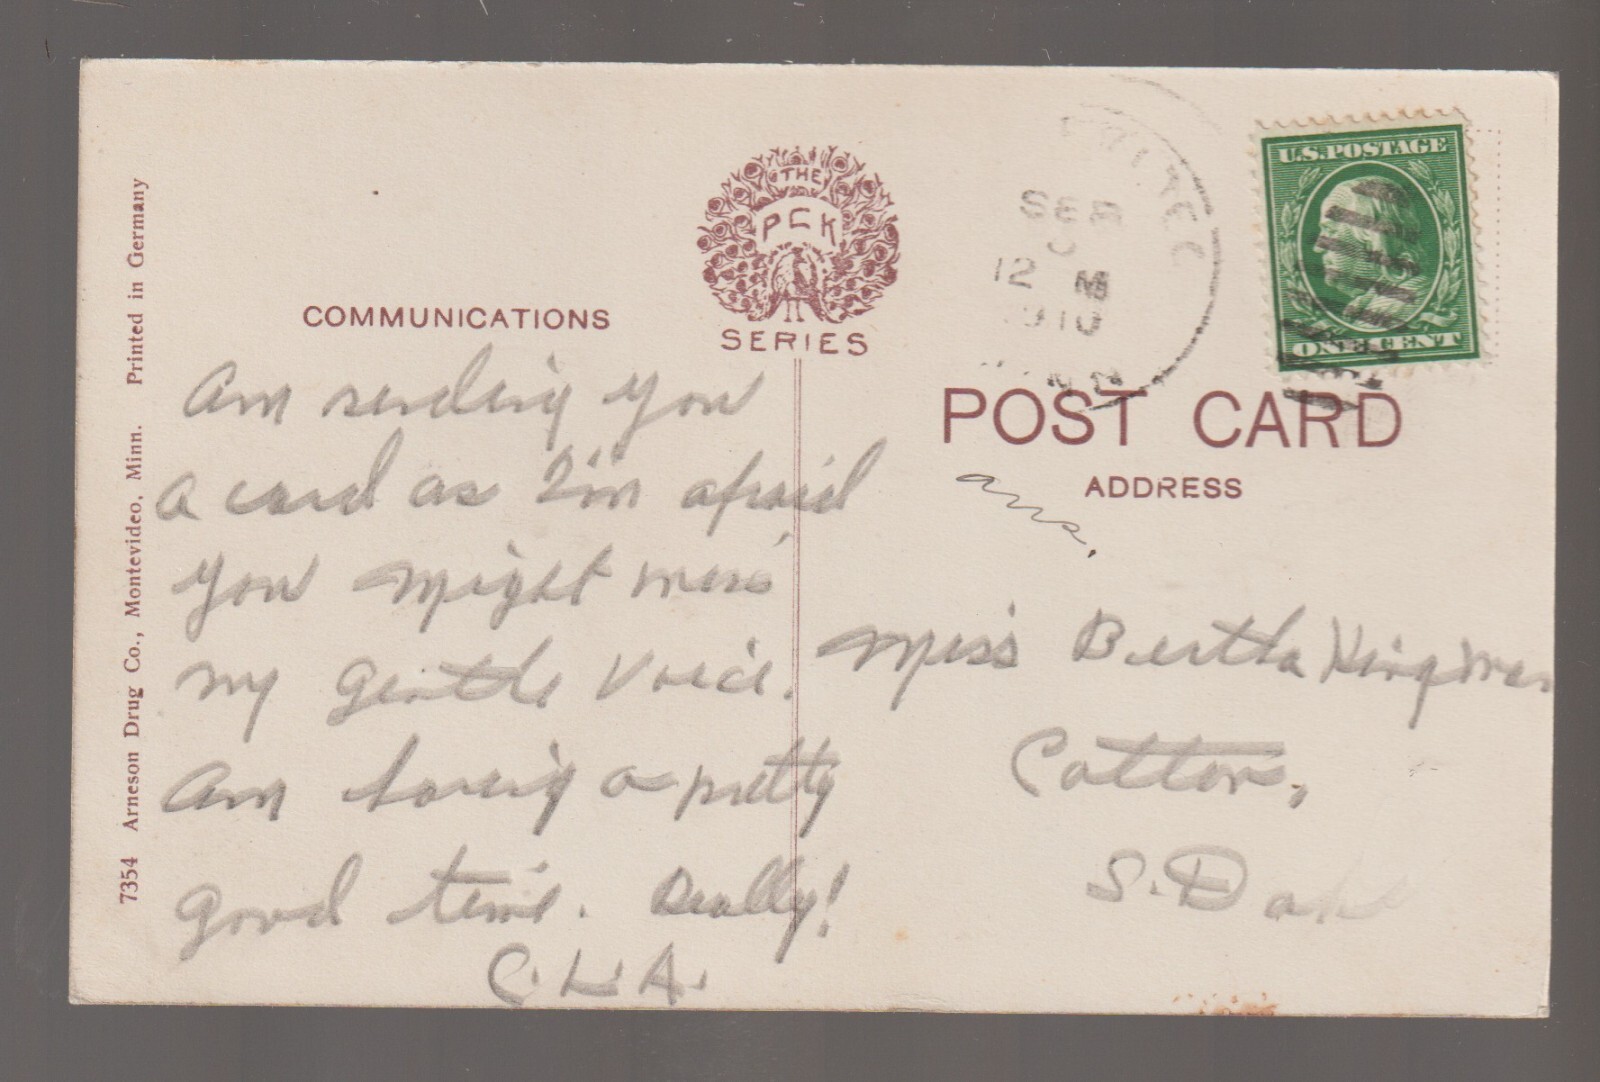 7354 Arneson Drug Co., Montevideo, Minn. Printed in Germany
THE
PCK
SERIES
COMMUNICATIONS
Am sending you
a card as I'm afraid
you might miss
my gentle voice.
Am having a pretty
good time. Really!
C.L.A.
SEP
12 M
1910
MINN
U.S. POSTAGE
ONE CENT
POST CARD
ADDRESS
ans.
Miss Bertha Kingman
Cotton,
S. Dak